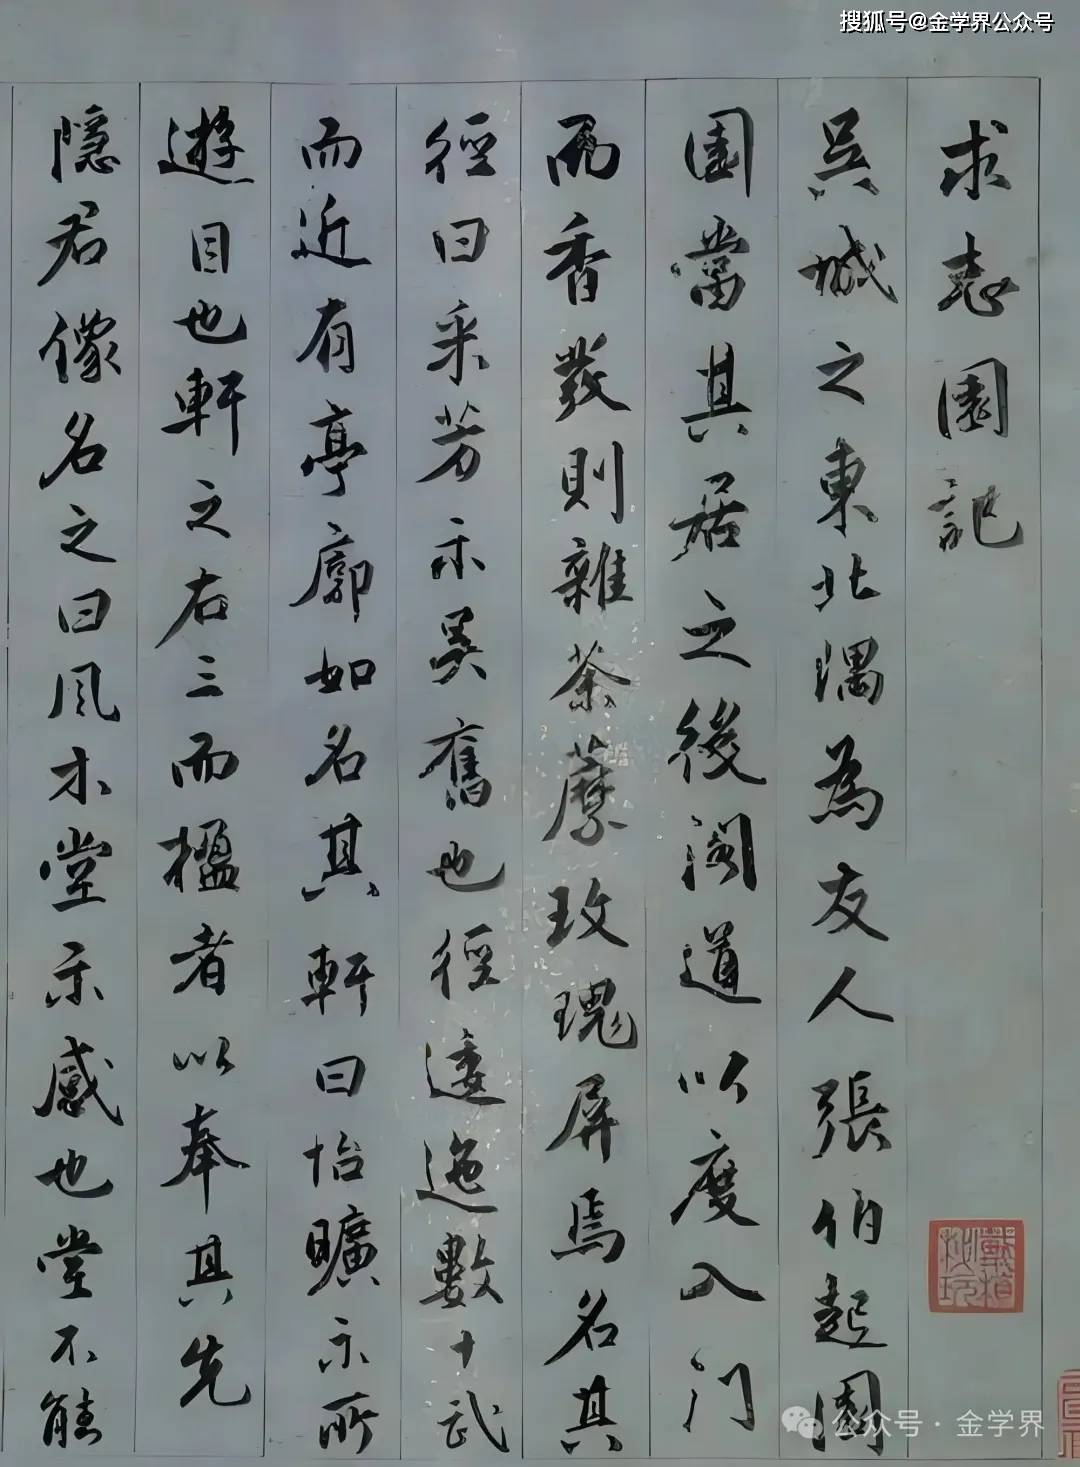 搜狐号@金学界公众号
求志園記
吳城之東北隅為友人張伯起園
園當其居之後闢道以度入門
而香發則雜荼蘼玫瑰屏焉名其
徑曰采芳示吳舊也徑逶迤數十武
而近有亭廓如名其軒曰怡曠示所
遊目也軒之右三而楹者以奉其先
隱君像名之曰風木堂示感也堂不能
公众号·金学界